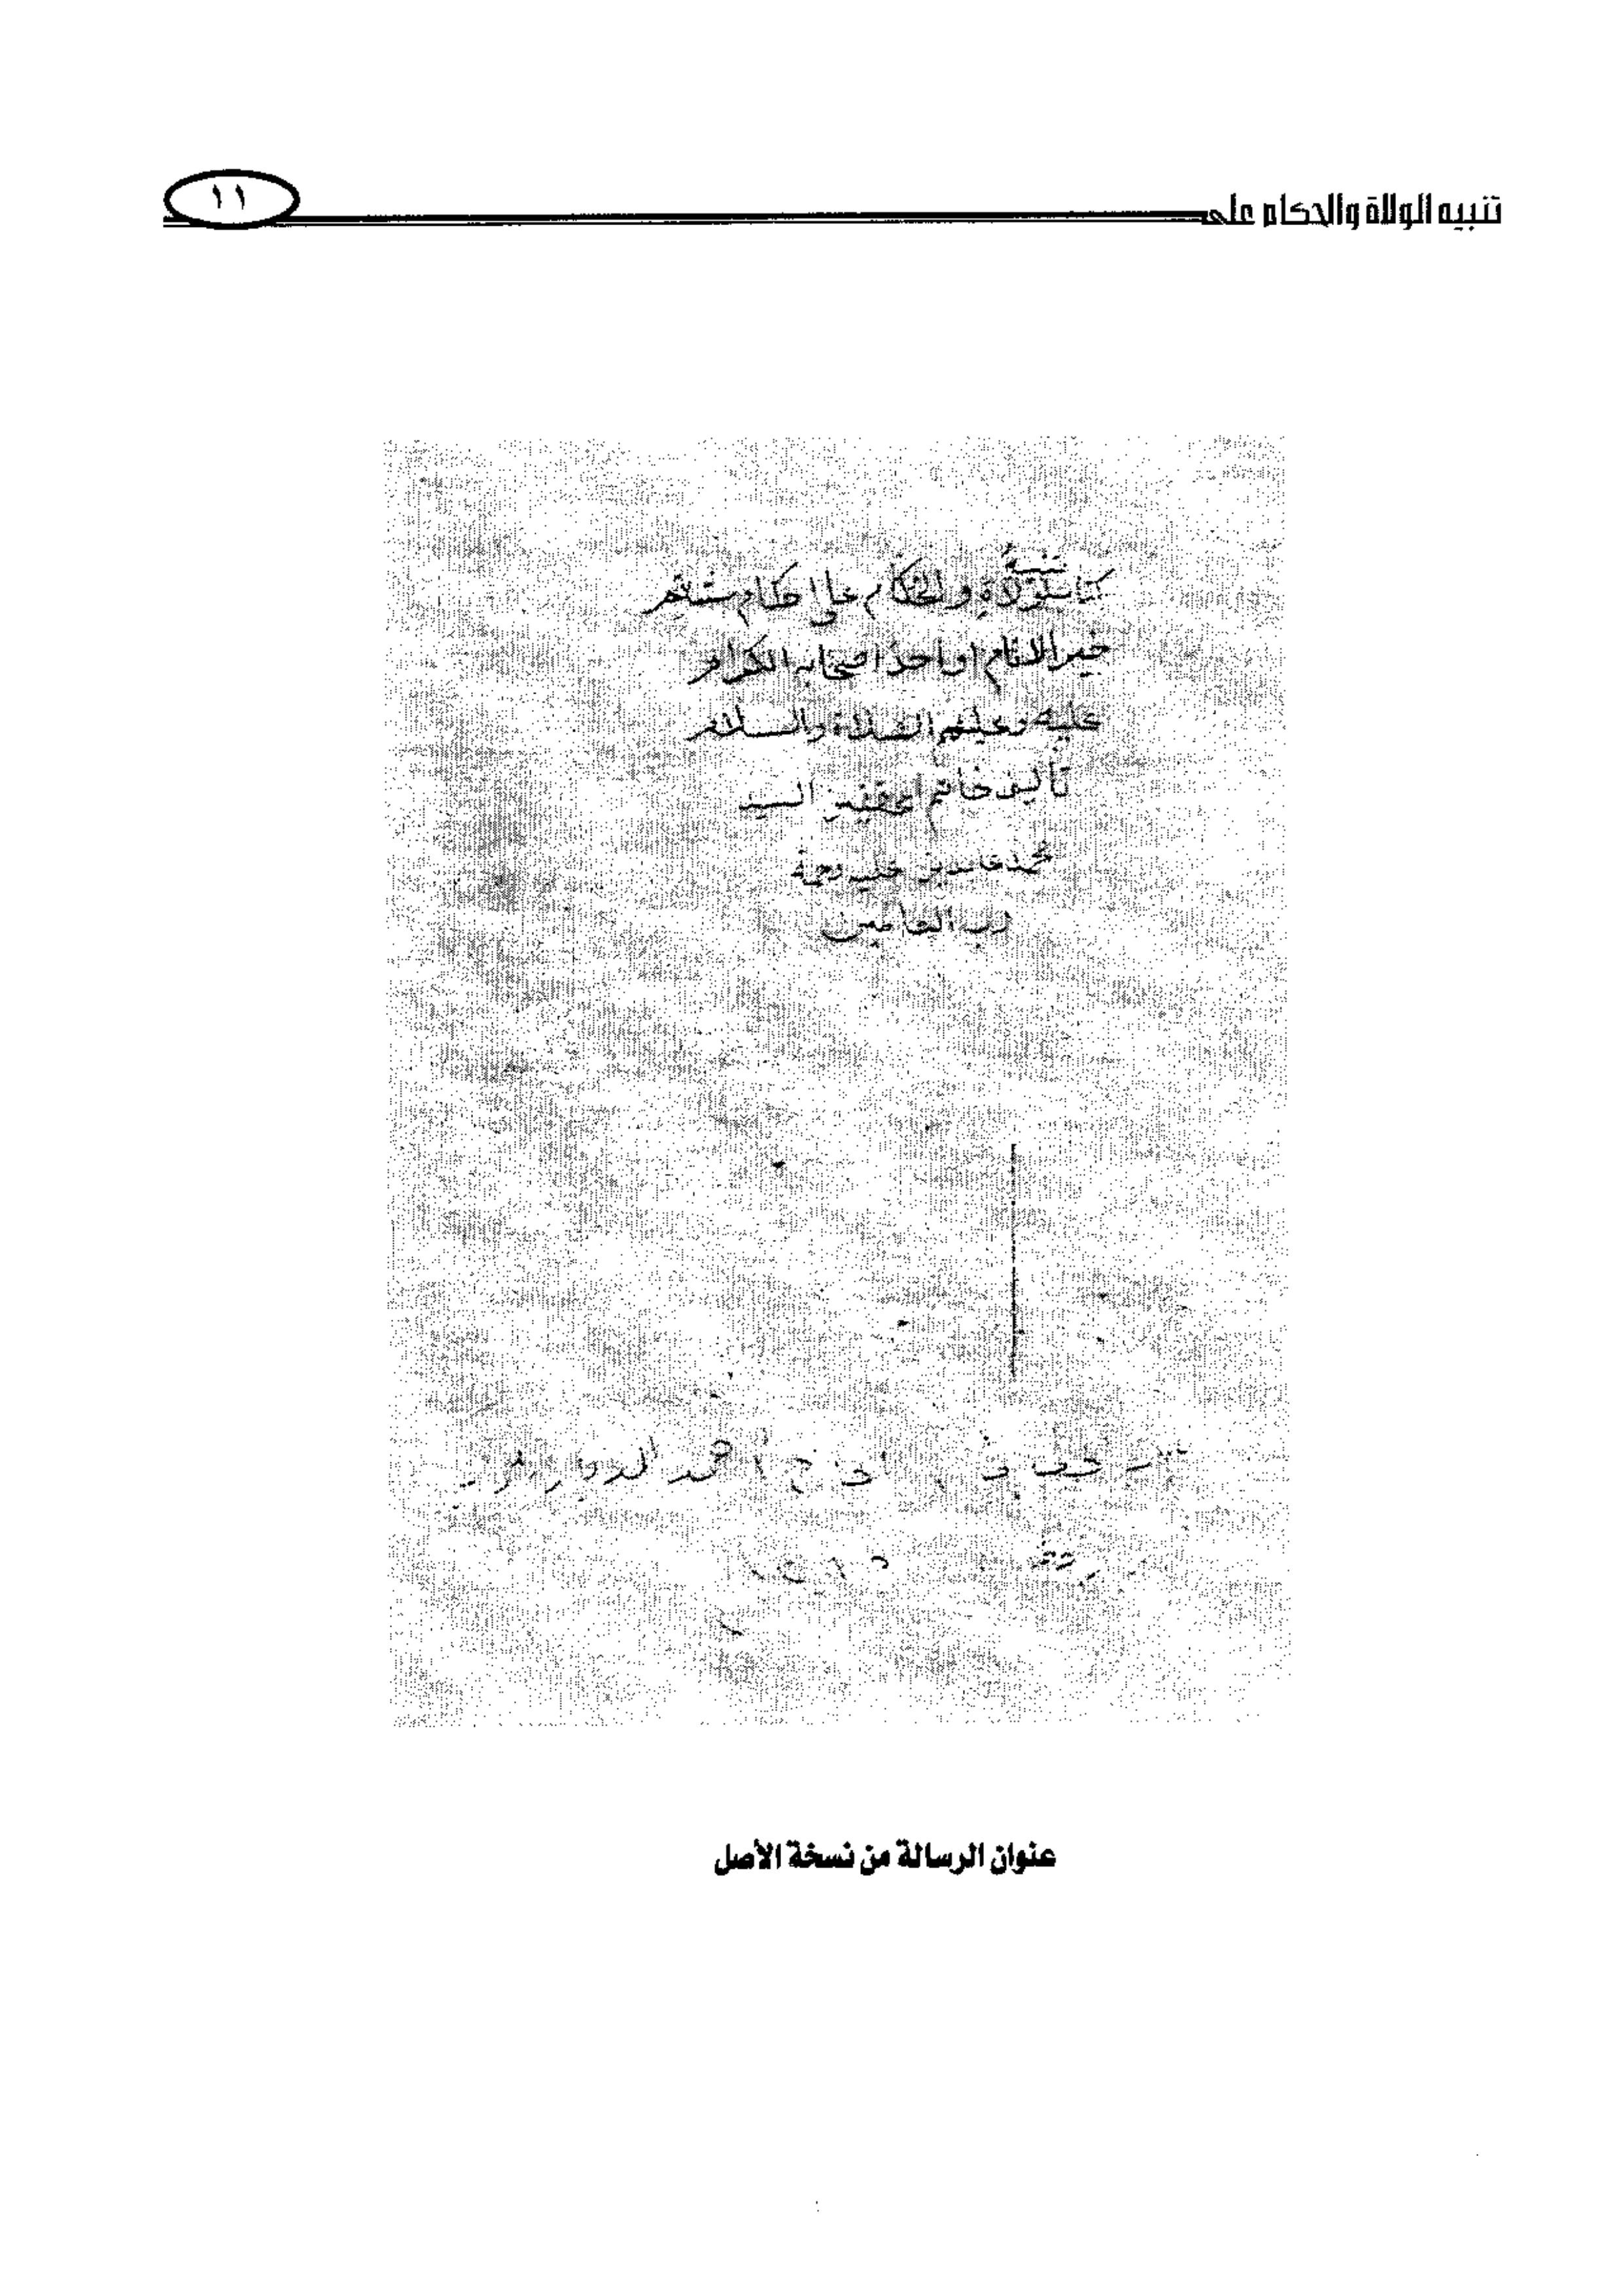 تنبيه الولاة والحكام على
١١
كتاب تنبيه الولاة والحكام على احكام شاتم
خير الانام او احد اصحابه الكرام
عليه وعليهم الصلاة والسلام
تأليف خاتم المحققين السيد
محمد عابدين عليه رحمة
رب العالمين
احمد
عنوان الرسالة من نسخة الأصل